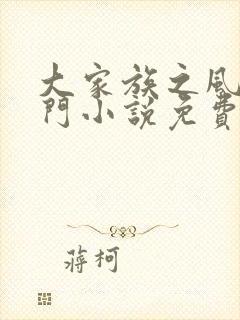 大家族之風
門小說免費
蔣柯